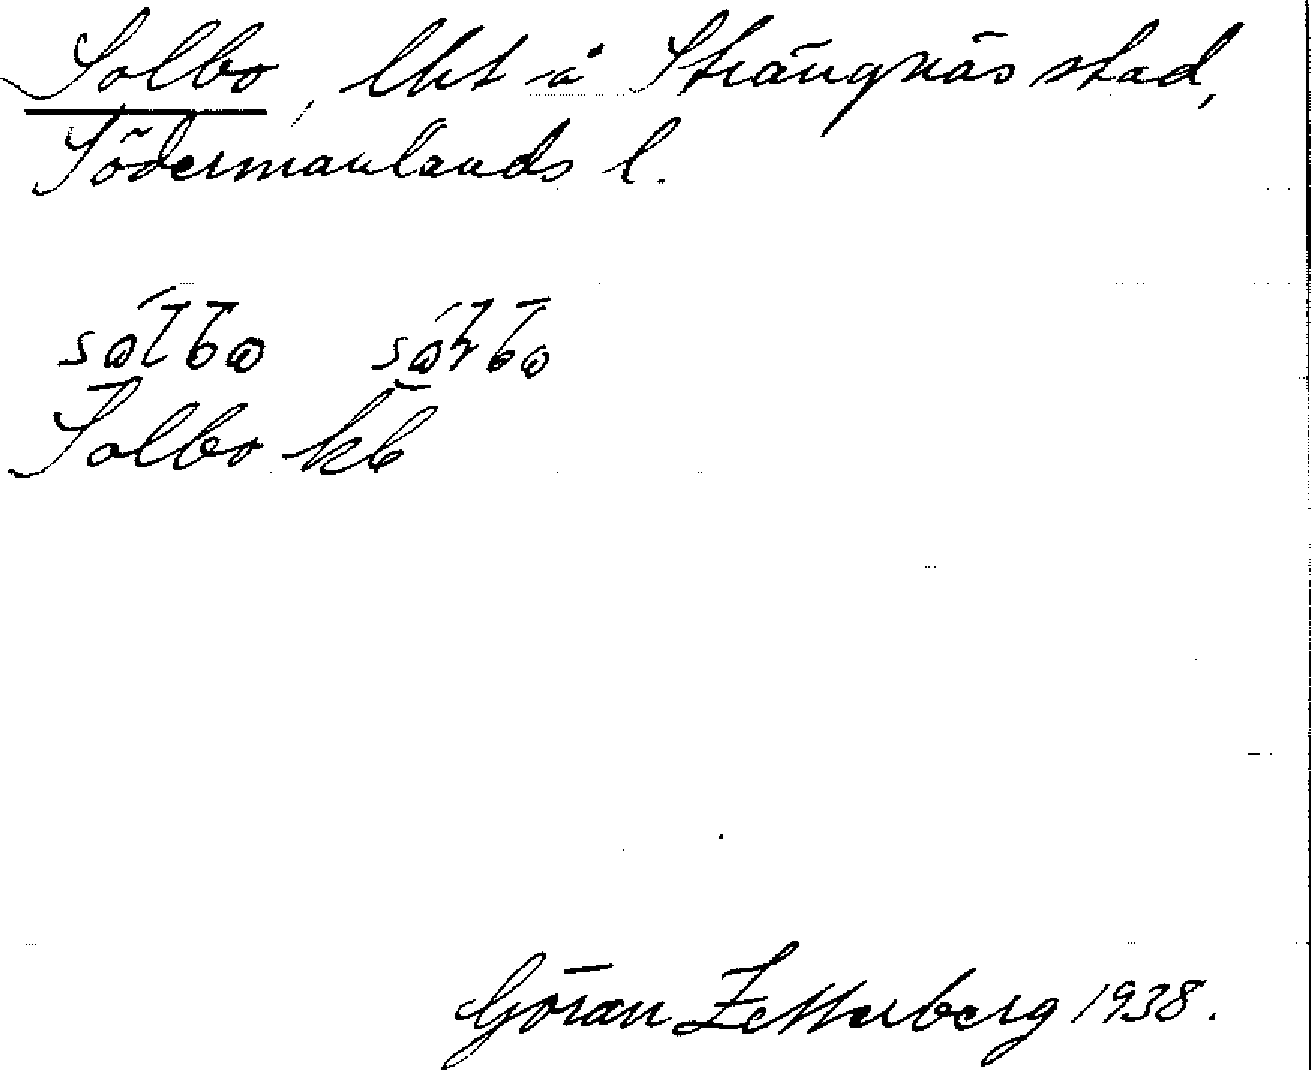 Solbo, lht å Strängnäs stad,
Södermanlands l.
Solbo kb
Göran Zetterberg 1938.